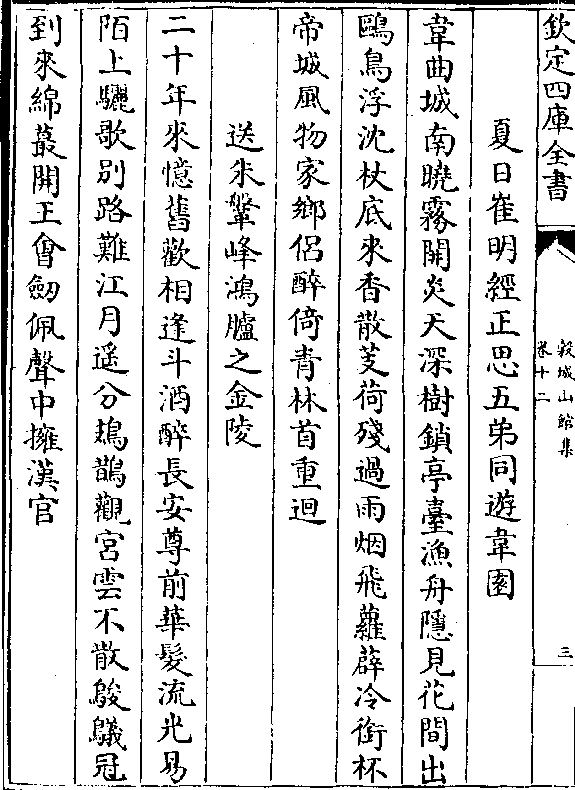 欽定四庫全書
穀城山館集
卷十二
三
夏日崔明經正思五弟同遊韋園
韋曲城南曉霧開炎天深樹鎖亭臺漁舟隱見花間出
鷗鳥浮沈杖底來香散芰荷殘過雨烟飛蘿薜冷銜杯
帝城風物家鄉侶醉倚青林首重迴
送朱鞶峰鴻臚之金陵
二十年來憶舊歡相逢斗酒醉長安尊前華髮流光易
陌上驪歌别路難江月遥分鳷鵲觀宮雲不散鵔鸃冠
到來綿蕞開王會劒佩聲中擁漢官